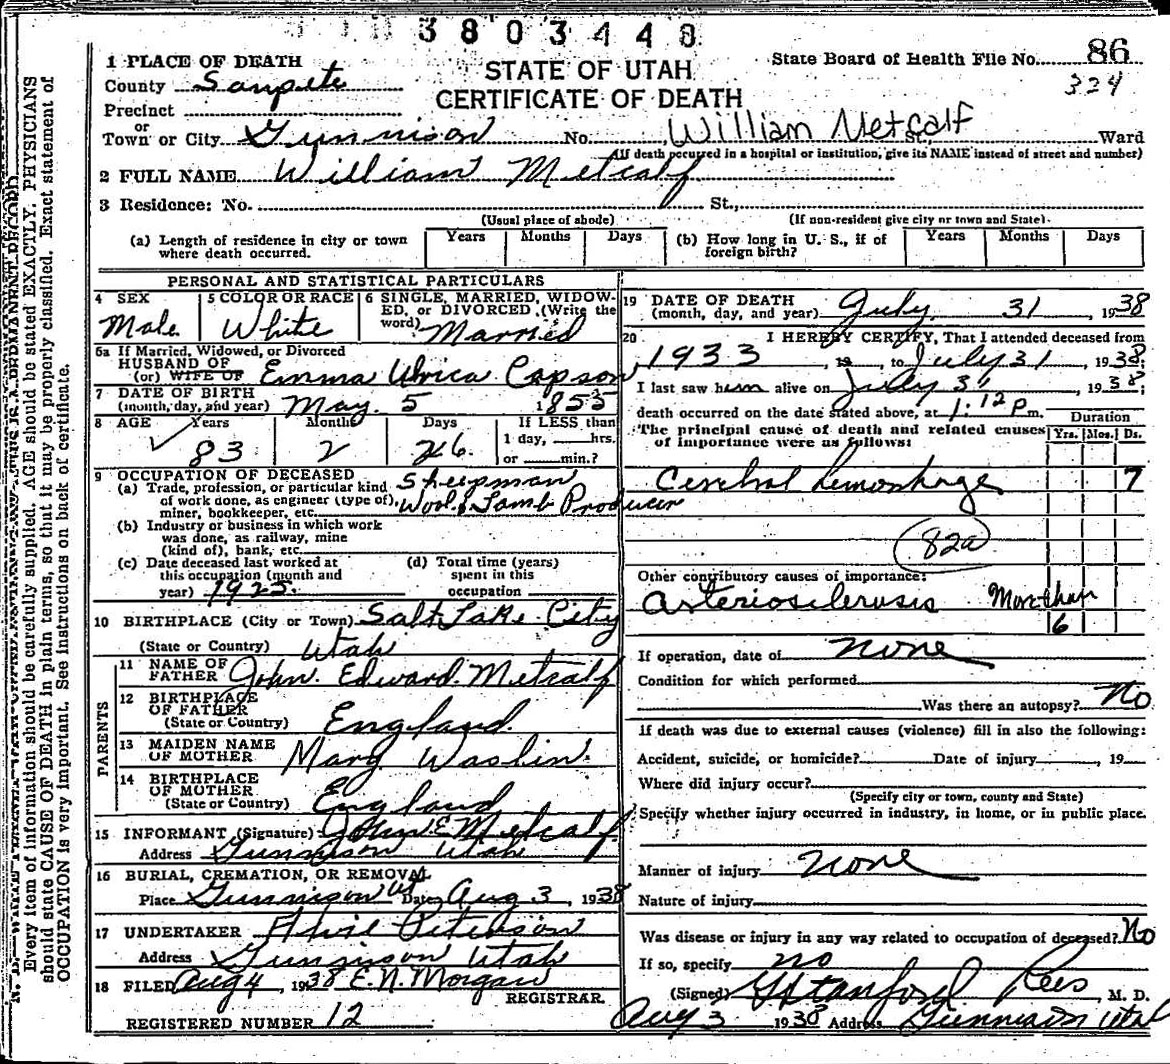 3803440
1 PLACE OF DEATH
STATE OF UTAH
State Board of Health File No. 86
324
County Sanpete
CERTIFICATE OF DEATH
Precinct
or
Town or City Gunnison No. William Metcalf St., Ward
(If death occurred in a hospital or institution, give its NAME instead of street and number)
2 FULL NAME William Metcalf
3 Residence: No. St.,
(Usual place of abode) (If non-resident give city or town and State)
(a) Length of residence in city or town where death occurred. Years Months Days (b) How long in U. S., if of foreign birth? Years Months Days
PERSONAL AND STATISTICAL PARTICULARS
4 SEX Male
5 COLOR OR RACE White
6 SINGLE, MARRIED, WIDOW-
ED, or DIVORCED (Write the
word) Married
6a If Married, Widowed, or Divorced
HUSBAND OF
(or) WIFE OF Emma Ulrica Capson
7 DATE OF BIRTH
(month, day, and year) May 5 1855
8 AGE Years Months Days If LESS than
1 day, hrs.
83 2 26 or min.?
9 OCCUPATION OF DECEASED
(a) Trade, profession, or particular kind
of work done, as engineer (type of),
miner, bookkeeper, etc. Sheepman
Wool & Lamb Producer
(b) Industry or business in which work
was done, as railway, mine
(kind of), bank, etc.
(c) Date deceased last worked at
this occupation (month and
year) 1925
(d) Total time (years)
spent in this
occupation
10 BIRTHPLACE (City or Town) Salt Lake City
(State or Country) Utah
PARENTS
11 NAME OF
FATHER John Edward Metcalf
12 BIRTHPLACE
OF FATHER
(State or Country) England
13 MAIDEN NAME
OF MOTHER Mary Waslin
14 BIRTHPLACE
OF MOTHER
(State or Country) England
15 INFORMANT (Signature) John E Metcalf
Address Gunnison Utah
16 BURIAL, CREMATION, OR REMOVAL
Place Gunnison Ut Date Aug 3, 1938
17 UNDERTAKER Peterson
Address Gunnison Utah
18 FILED Aug 4, 1938 E. N. Morgan
REGISTRAR
REGISTERED NUMBER 12
19 DATE OF DEATH
(month, day, and year) July 31 1938
20 I HEREBY CERTIFY, That I attended deceased from
1933, 19, to July 31 1938
I last saw him alive on July 31 1938;
death occurred on the date stated above, at 1:12 P m.
Duration
The principal cause of death and related causes
of importance were as follows:
Yrs. Mos. Ds.
Cerebral hemorrhage 7
82a
Other contributory causes of importance:
Arteriosclerosis More than
6
If operation, date of none
Condition for which performed
Was there an autopsy? No
If death was due to external causes (violence) fill in also the following:
Accident, suicide, or homicide? Date of injury, 19
Where did injury occur?
(Specify city or town, county and State)
Specify whether injury occurred in industry, in home, or in public place.
Manner of injury none
Nature of injury
Was disease or injury in any way related to occupation of deceased? No
If so, specify no
(Signed) G Stanford Rees, M. D.
Aug 3 1938 Address Gunnison Utah
Every item of information should be carefully supplied. AGE should be stated EXACTLY. PHYSICIANS
should state CAUSE OF DEATH in plain terms, so that it may be properly classified. Exact statement of
OCCUPATION is very important. See instructions on back of certificate.